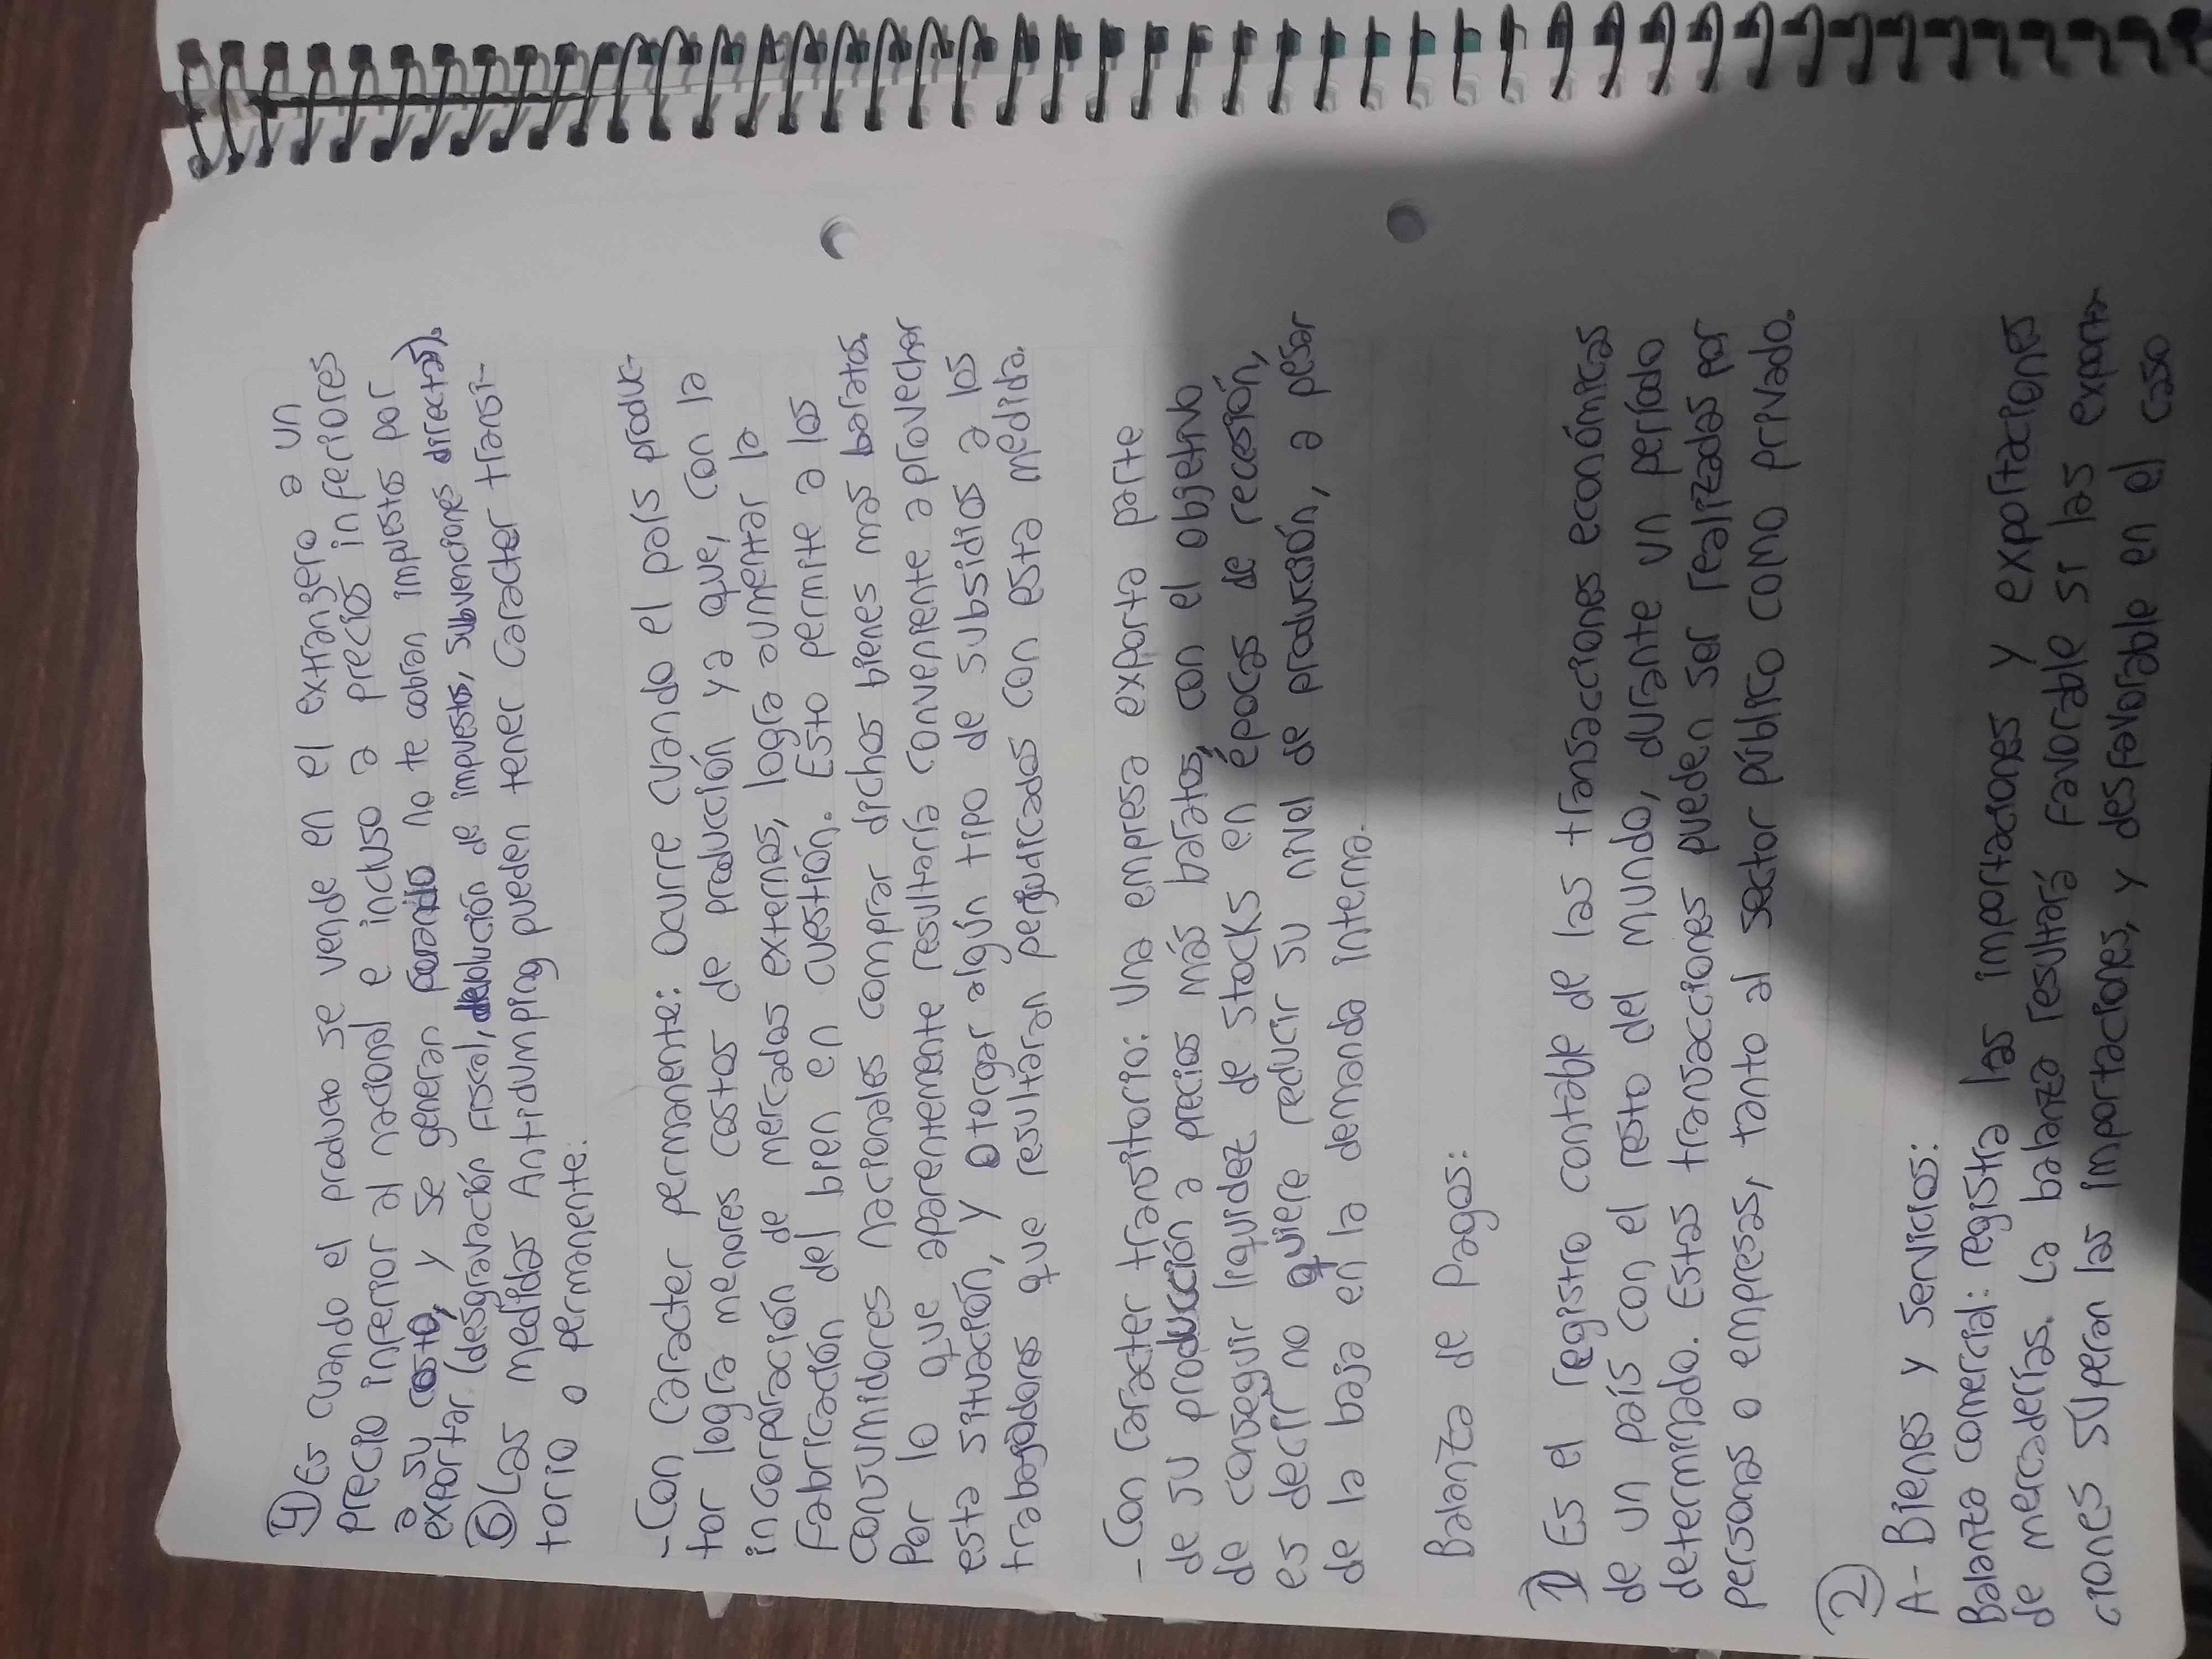 4) Es cuando el producto se vende en el extrangero a un
precio inferior al nacional e incluso a precios inferiores
a su costo, y se generan porando no te cobran impuestos por
exportar (desgravación fiscal, devolución de impuestos, subvenciones directas).
6) Las medidas Antidumping pueden tener caracter transi-
torio o permanente:
- Con caracter permanente: ocurre cuando el país produc-
tor logra menores costos de producción ya que, con la
incorporación de mercados externos, logra aumentar la
fabricación del bien en cuestión. Esto permite a los
consumidores nacionales comprar dichos bienes mas baratos.
Por lo que aparentemente resultaría conveniente aprovechar
esta situación, y otorgar algún tipo de subsidios a los
trabagadores que resultaran pergudicados con esta medida.
- Con caracter transitorio: Una empresa exporta parte
de su producción a precios más baratos, con el objetivo
de conseguir liquidez de stocks en épocas de recesión,
es decir no quiere reducir su nivel de producción, a pesar
de la baja en la demanda interna.
Balanza de Pagos:
1) Es el registro contable de las transacciones económicas
de un país con el resto del mundo, durante un período
determinado. Estas transacciones pueden ser realizadas por
personas o empresas, tanto al sector público como privado.
2)
A- Bienes y servicios:
Balanza comercial: registra las importaciones y exportaciones
de mercaderías. La balanza resultará favorable si las exporta
ciones superan las importaciones, y desfavorable en el caso